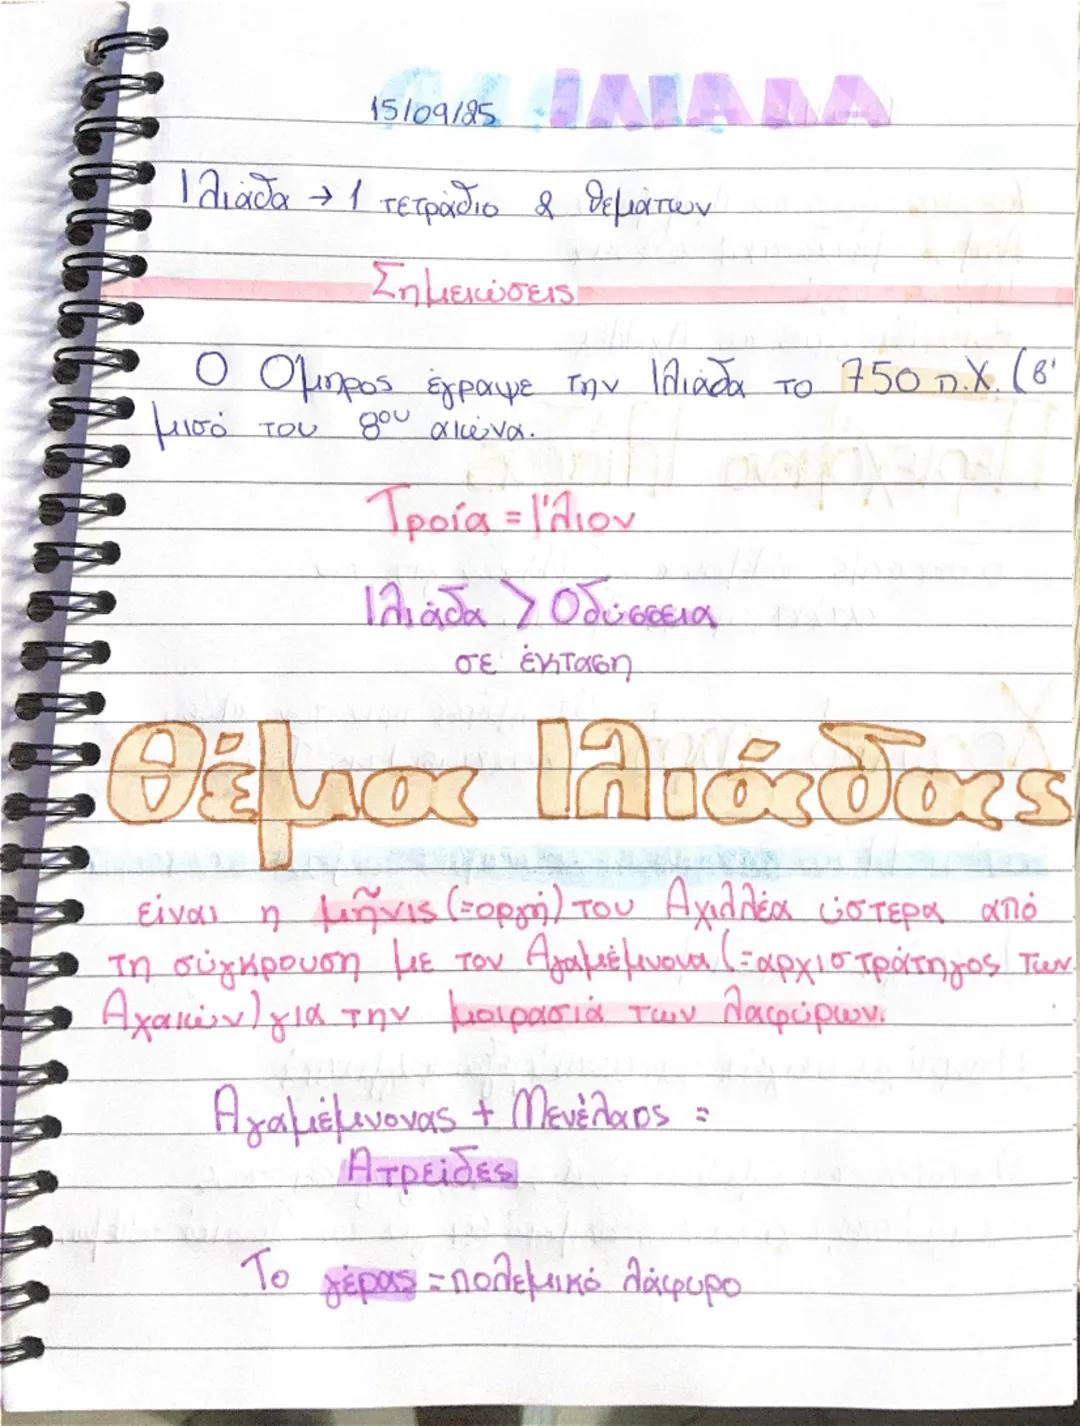 15/09/25
Ιλιάδα → 1 τετράδιο 2 θεμάτων
Σημειώσεις
Ο Όμηρος έγραψε την Ιλιάδα το 750 π.Χ. (β'
μισό του 8ου αιώνα.
Τροία = Ίλιον
Ιλιάδα > Οδύσσεια
σε έκταση
Θέμα Ιλιάδας
είναι η μῆνις (=οργή) του Αχιλλέα ύστερα από
τη σύγκρουση με τον Αγαμέμνονα (=αρχιστράτηγος των
Αχαιών) για την μοιρασιά των λαφύρων.
Αγαμέμνονας + Μενέλαος =
Ατρείδες
Το γέρας = πολεμικό λάφυρο